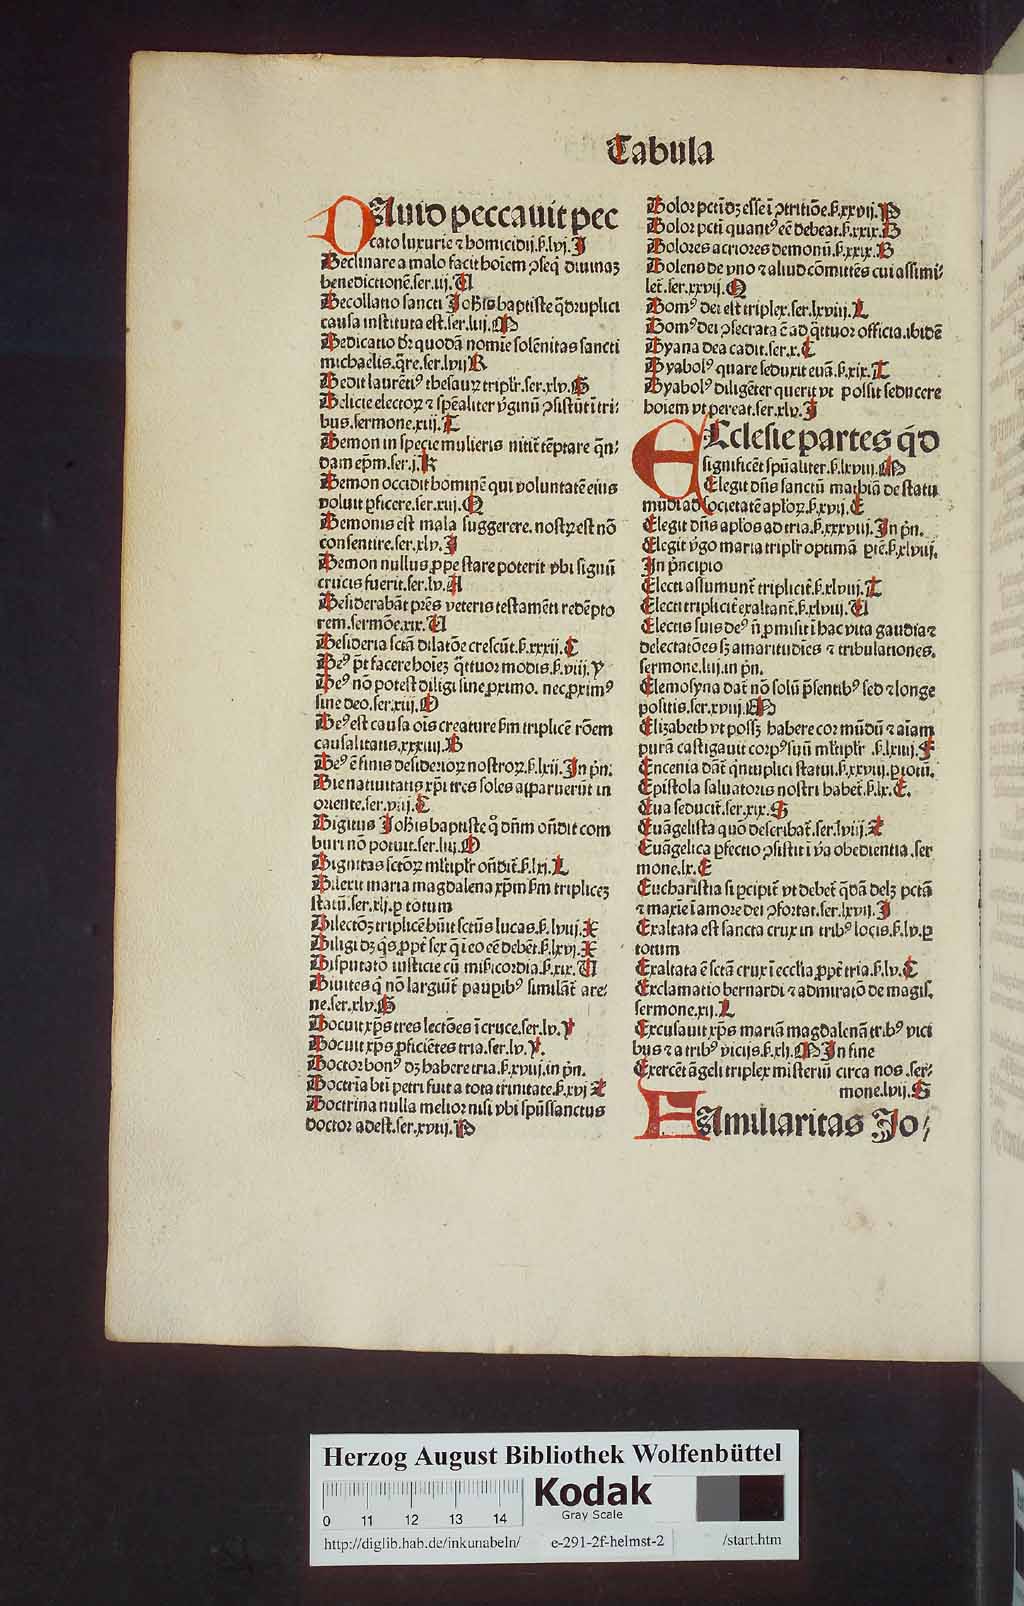 Tabula
DAuid peccauit pec
cato luxurie ⁊ homicidij.ẜ.lvj.I
Declinare a malo facit hoīem ꝯseq̄ diuinaꝫ
benedictionē.ser.iij.U
Decollatio sancti Johīs baptiste q̄druplici
causa instituta est.ser.liij.M
Dedicatio dr̄ quodā nomīe solēnitas sancti
michaelis.q̄re.ser.lvij K
Dedit laurētiꝰ thesauꝝ triplr̄.ser.xlv.G
Delicie electoꝝ ⁊ spēaliter v̓ginū ꝯsistūt ī tri⸗
bus.sermone.xiij.T
Demon in specie mulieris nitit᷑ tēptare q̄n⸗
dam ep̄m.ser.j.K
Demon occidit hominē qui voluntatē eius
voluit ꝑficere.ser.xij.Q
Demonis est mala suggerere. nostꝝ est nō
consentire.ser.xlv.I
Demon nullus ꝓpe stare poterit vbi signū
crucis fuerit.ser.lv.A
Desiderabāt pr̄es veteris testamēti redēpto
rem.sermōe.xix.U
Desideria sctā dilatōe crescūt.ẜ.xxxij.C
Deꝰ p̄t facere hoīeꝫ q̄ttuor modis.ẜ.viij.Y
Deꝰ nō potest diligi sine ꝓximo. nec ꝓximꝰ
sine deo.ser.xiij.O
Deꝰ est causa oīs creature ẜm triplicē rōem
causalitatis.xxxiiij.B
Deꝰ ē finis desiderioꝝ nostroꝝ.ẜ.lxii.In pn̄.
Die natiuitatis xp̄i tres soles apparuerūt in
oriente.ser.viij.C
Digitus Johīs baptiste qͦ dn̄m on̄dit com
buri nō potuit.ser.liij.O
Dignitas sctōꝝ ml̄tiplr̄ on̄dit᷑.ẜ.lxj.L
Dilexit maria magdalena xp̄m ẜm triplicez
statū.ser.xlj.ꝑ totum
Dilectōꝫ triplicē hūit sctūs lucas.ẜ.lviij.X
Diligi dꝫ q̄s ꝓpt̄ sex q̄ ī eo eē debēt.ẜ.lxvj.X
Disputatō iusticie cū mīẜicordia.ẜ.xix.U
Diuites q̄ nō largiūt᷑ pauꝑibꝰ similāt᷑ are⸗
ne.ser.xlv.G
Docuit xp̄s tres lectōes ī cruce.ser.lv.Y
Docuit xp̄s ꝓficiētes tria.ser.lv.Y.
Doctor bonꝰ dꝫ habere tria.ẜ.xviij.in pn̄.
Doctrīa bt̄i petri fuit a tota trinitate.ẜ.xvj Z
Doctrina nulla melior nisi vbi spūssanctus
doctor adest.ser.xviij.P
Dolor pcti̅ dꝫ esse ī ꝯtritiōe.ẜ.xxvij.P
Dolor pcti̅ quantꝰ eē debeat.ẜ.xxix.B
Dolores acriores demonū.ẜ.xxix.B
Dolens de vno ⁊ aliud cōmittēs cui assimi⸗
let᷑.ser.xxvij.Q
Domꝰ dei est triplex.ser.lxviij.L
Domꝰ dei ꝯsecrata ē ad q̄ttuor officia.ibidē
Dyana dea cadit.ser.x.C
Dyabolꝰ quare seduxit euā.ẜ.xix.T
Dyabolꝰ diligēter querit vt possit seducere
hoiem vt pereat.ser.xlv.I
ECclesie partes qd̄
significēt spūaliter.ẜ.lxviij.M
Elegit dn̄s sanctū mathiā de statu
mūdi ad societatē apl̓oꝝ.ẜ.xvij.E
Elegit dn̄s apl̓os ad tria.ẜ.xxxviij.In pn̄.
Elegit v̓go maria triplr̄ optimā ꝑtē.ẜ.xlviij.
In pn̄cipio
Electi assumunt᷑ triplicit᷑.ẜ.xlviij.T
Electi triplicit᷑ exaltant᷑.ẜ.xlviij.U
Electis suis deꝰ n̄ ꝓmisit ī hac vita gaudia ⁊
delectatōes sꝫ amaritudīes ⁊ tribulationes.
sermone.liij.in pn̄.
Elemosyna dat᷑ nō solū p̄sentibꝰ sed ⁊ longe
positis.ser.xviij.M
Elizabeth vt possꝫ habere cor mūdū ⁊ aīam
purā castigauit corpꝰ suū ml̄tiplr̄ .ẜ.lxiiij.F
Encenia dāt᷑ q̄ntuplici statui.ẜ.xxviij.ꝑ totū.
Epistola saluatoris nostri habet᷑.ẜ.lx.E.
Eua seducit᷑.ser.xix.S
Euāgelista quō describat᷑.ser.lviij.Z
Euāgelica ꝑfectio ꝯsistit ī v̓a obedientia .ser
mone.lx.E
Eucharistia si ꝑcipit᷑ vt debet᷑ q̄dā delꝫ pctā
⁊ maxīe ī amore dei ꝯfortat.ser.lxvij.I
Exaltata est sancta crux in tribꝰ locis.ẜ.lv.ꝑ
totum
Exaltata ē sctā crux ī ecclīa ꝓpt̄ tria.ẜ.lv.C
Exclamatio bernardi ⁊ admiratō de magis.
sermone.xij.L
Excusauit xp̄s mariā magdalenā tribꝰ vici
bꝰ ⁊ a tribꝰ vicijs.ẜ.xlj.M In fine
Exercēt āgeli triplex mīsteriū circa nos .ser⸗
mone.lvij.S
FAmiliaritas Jo⸗
Herzog August Bibliothek Wolfenbüttel
0 11 12 13 14
Kodak
Gray Scale
http://diglib.hab.de/inkunabeln/ e-291-2f-helmst-2 /start.htm